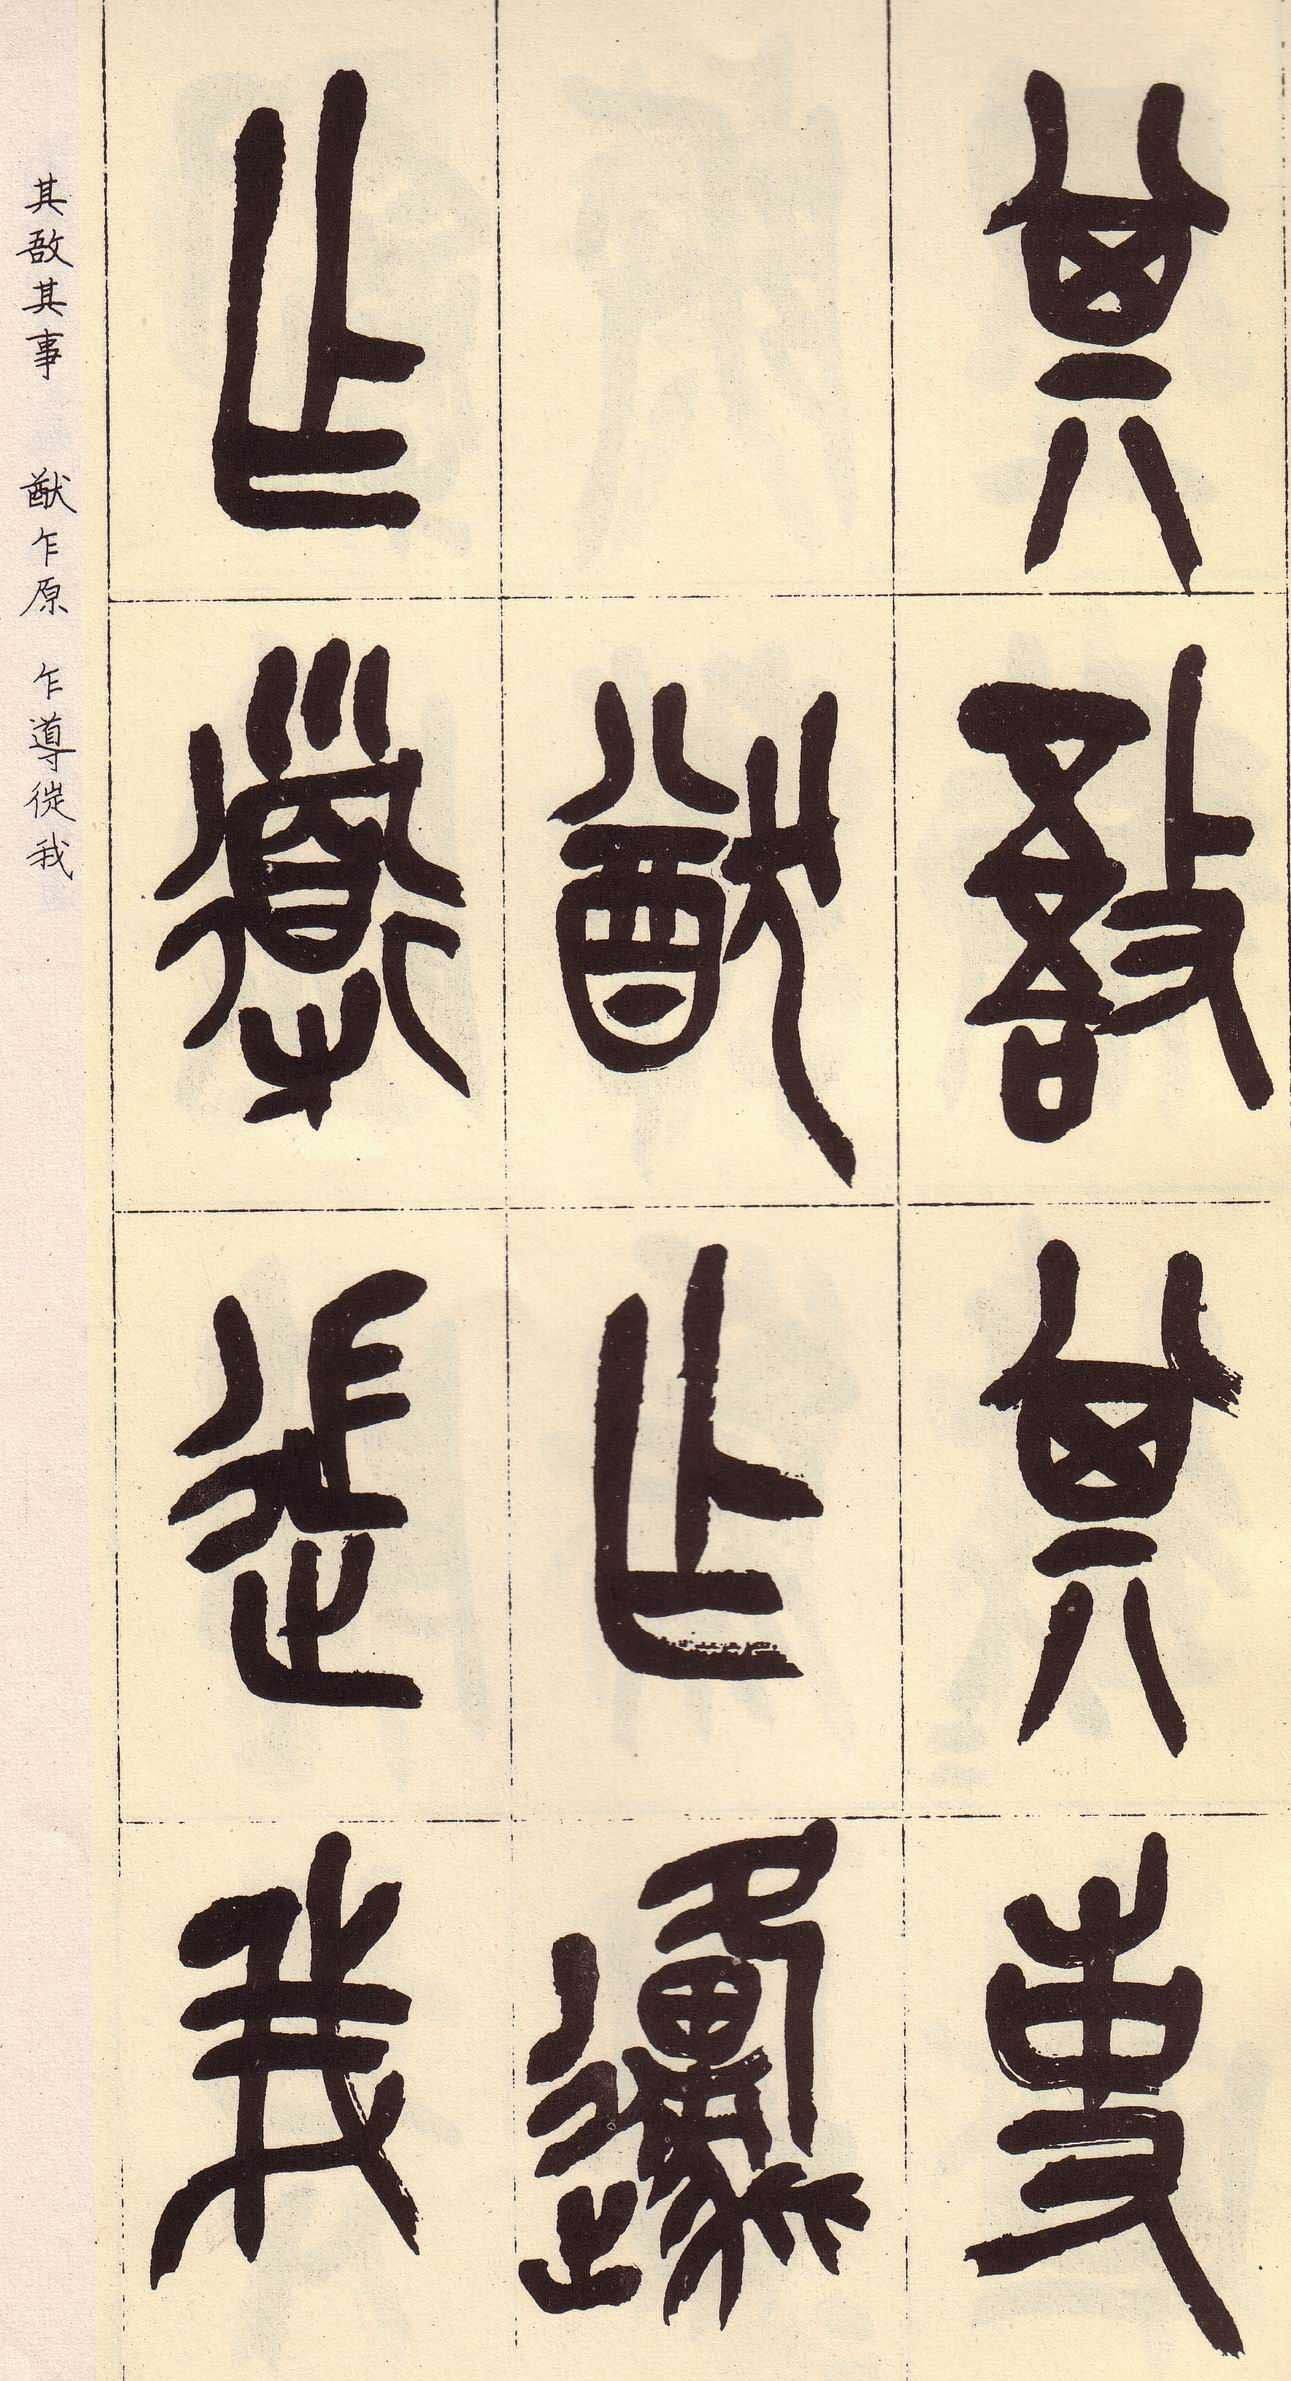 其敔其事
猷乍原
乍導從我
其敔其事 猷乍原 乍導從我